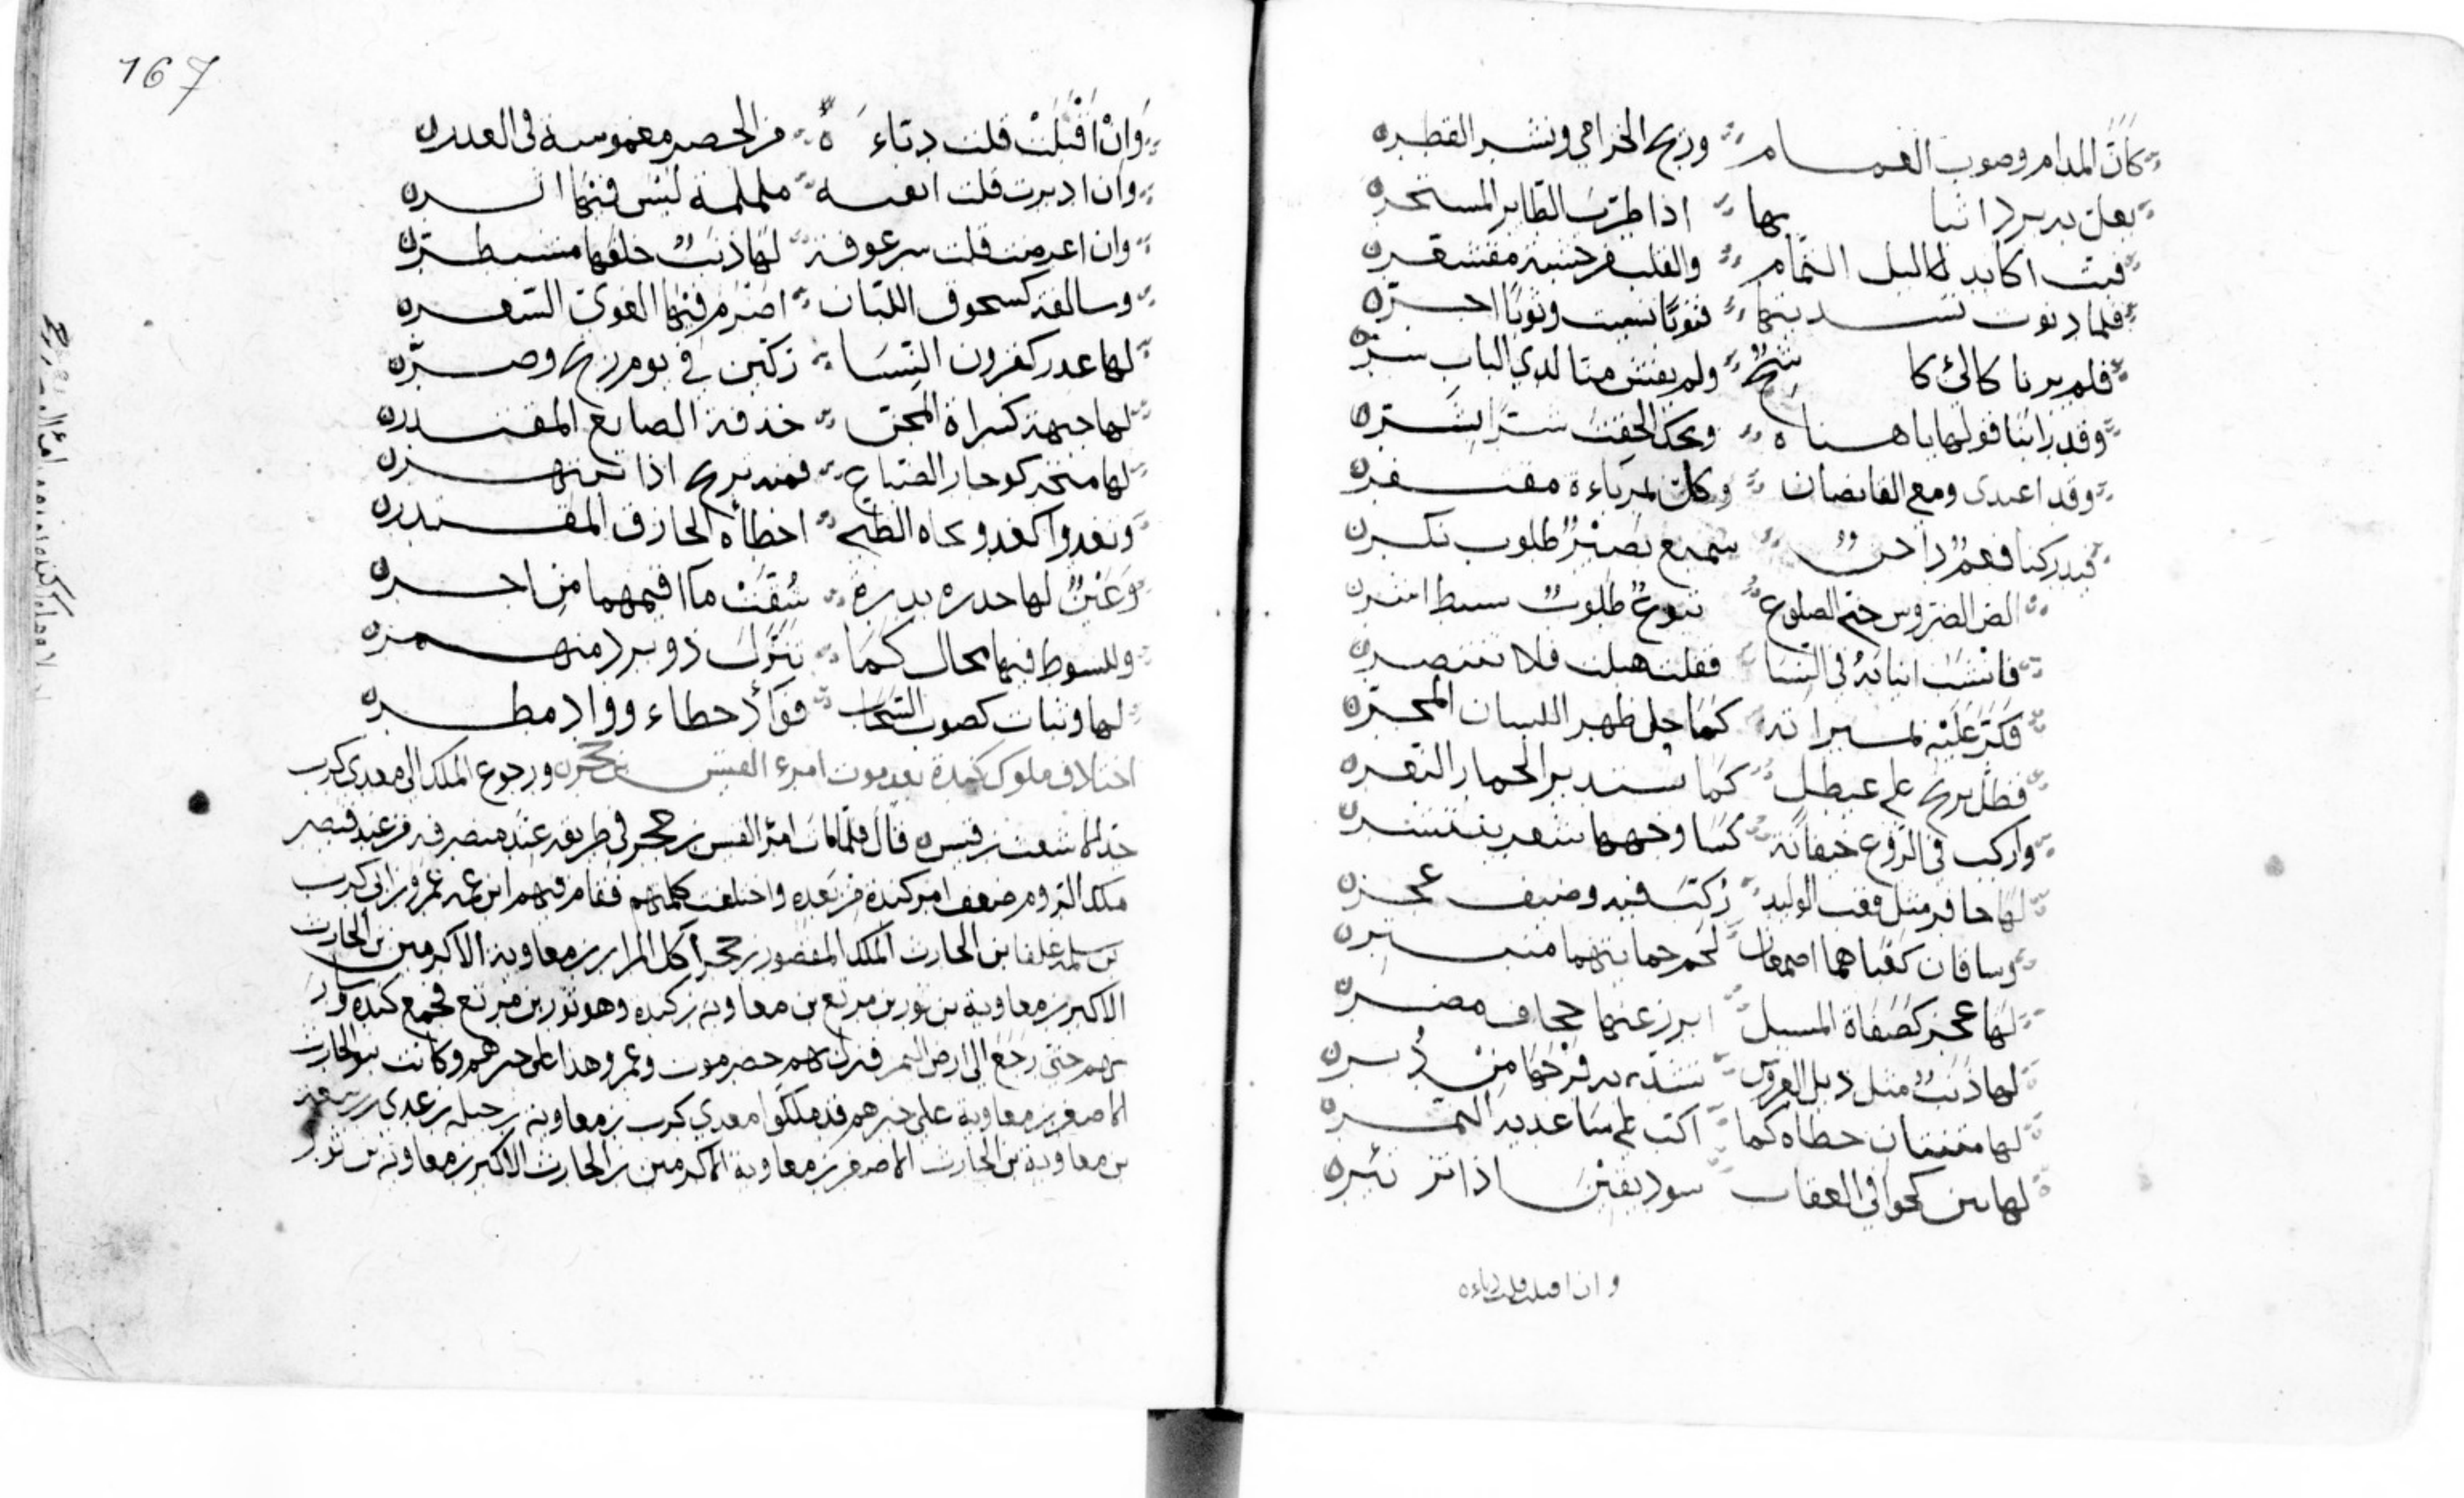 كأنّ المدام وصوب الغمام وريح الخزامى ونشر القطر
يعل به برد انيابها اذا طرّب الطاير المستحر
فبت اكابد ليل التمام والقلب من خشية مقشعر
فلما دنوت تسديتها فثوبًا نسيت وثوبًا اجر
فلم يرنا كالئ كاشح ولم يفش منا لدي الباب سر
وقد رابنا قولها يا هناه ويحك الحقت شرًا بشر
وقد اغتدى ومع القانصان وكل بمرباءة مقتفر
فيدركنا فغم داجن سميع بصير طلوب نكر
الص الضروس حنى الضلوع تبوع طلوب نشيط اشر
فانشب اظفاره في النسا فقلت هبلت فلا تنتصر
فكرّ عليه بمبراته كما خل ظهر اللسان المجر
فظل يرنح على غيطل كما يستدير الحمار النعر
واركب في الروع خيفانة كسا وجهها شعر ينتشر
لها حافر مثل قعب الوليد ركب فيه وضيف عجز
وساقان كعباهما اصمعان لحم حماتيهما منبتر
لها عجز كصفاة المسيل ابرز عنها جحاف مضر
لها ذنب مثل ذيل العروس تسد به فرجها من دبر
لها متنتان خطاه كما اكب على ساعديه النمر
لها ثنن كخوافي العقاب سود يفئن اذا تزبئر
وان اقبلت قلت دباءه
167
وان اقبلت قلت دباءة من الخضر مغموسة في الغدر
وان ادبرت قلت اثفيه ململمة ليس فيها اثر
وان اعرضت قلت سرعوفة لها ذنب خلفها مسبطر
وسالفة كسحوق اللبان اضرم فيها الغوى السعر
لها غدر كقرون النسا ركبن في يوم ريح وصر
لها جبهة كسراة المجن حذفه الصانع المقتدر
لها منخر كوجار الضباع فمنه تريح اذا تنبهر
وتعدوا كعدو نجاه الظبى اخطأه الحاذف المقتدر
وعين لها حدره بدرة شقت مآقيهما من اخر
وللسوط فيها مجال كما تنزل ذو برد منهمر
لها وثبات كصوب السحاب فواد خطاء وواد مطر
اختلاف ملوك كندة بعد موت امرء القيس بن حجر ورجوع الملك الى معدي كرب
جد الاشعث بن قيس قال فلما مات امرؤ القيس بن حجر في طريقه عند منصرفه من عند قيصر
ملك الروم ضعف امر كندة من بعده واختلفت كلمتهم فقام فيهم ابن عمه عمرو بن ابي كرب
بن سلمة غلفا بن الحارث الملك المقصور بن حجر آكل المرار بن معاوية الاكرمين بن الحارث
الاكبر بن معاوية بن ثور بن مرتع بن معاوية بن كندة وهو ثور بن مرتع فجمع كنده وسار
بهم حتى رجع الى ارض اليمن فنزل بهم حضرموت وعمرو هذا على خبرهم وكانت بنو الحارث
الاصغر بن معاوية على خبرهم قد ملكوا معدي كرب بن معاوية بن جبلة بن عدى بن ربيعة
بن معاوية بن الحارث الاصغر بن معاوية الاكرمين بن الحارث الاكبر بن معاوية بن ثور